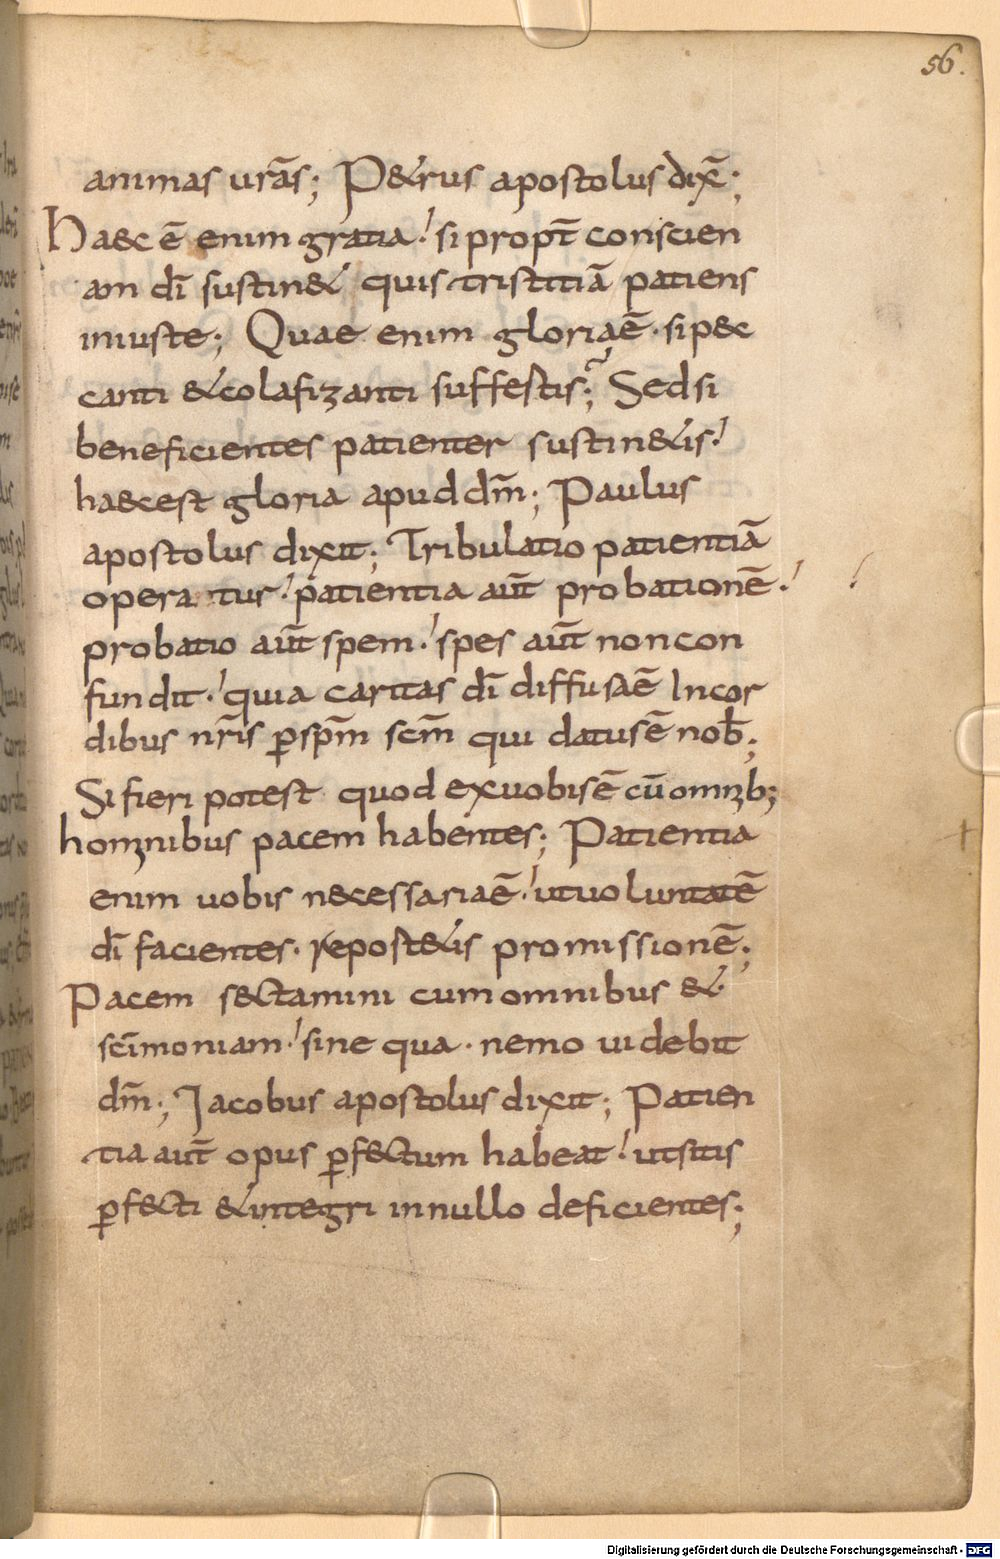 56.
animas urãs; P&rus apostolus dix̃;
Ha&c ẽ enim gratia! si propt̃ conscien
am dĩ sustin& quis tristitiã patiens
iniuste; Quae enim gloriaẽ · si p&c
canti & colafizanti suffestis; Sed si
beneficientes patienter sustin&is!
ha&c est gloria apud dm̃; Paulus
apostolus dixit; Tribulatio patientiã
opera tur! patientia aut̃ probationẽ!
probatio aut̃ spem! spes aut̃ non con
fundit! quia caritas dĩ diffusaẽ In cor
dibus nr̃is ꝑ sp̃m scm̃ qui datus ẽ nob̃;
Si fieri potest quod ex uobis ẽ cũ omnib;
hominibus pacem habentes; Patientia
enim uobis n&cessaria ẽ! ut uoluntatẽ
dĩ facientes · repost&is promissionẽ;
Pacem s&ctamini cum omnibus &
scĩmoniam! sine qua · nemo uidebit
dm̃; Jacobus apostolus dixit; Patien
tia aut̃ opus ꝑf&ctum habeat! ut sitis
ꝑf&cti & integri in nullo deficientes;
Digitalisierung gefördert durch die Deutsche Forschungsgemeinschaft - DFG